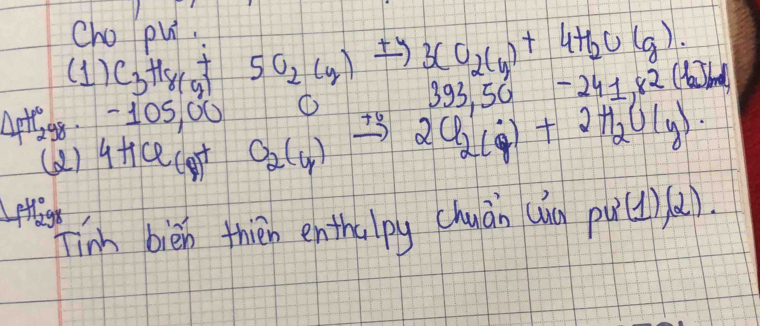 Cho pư:
(1) C3H8(g) + 5O2(g) →t° 3CO2(g) + 4H2O(g).
ΔfH°298. -105,00 0 393,50 -241,82 (kJ/mol)
(2) 4HCl(g) + O2(g) →t° 2Cl2(g) + 2H2O(g).
ΔfH°298
Tính biến thiên enthalpy chuẩn của pư (1),(2).